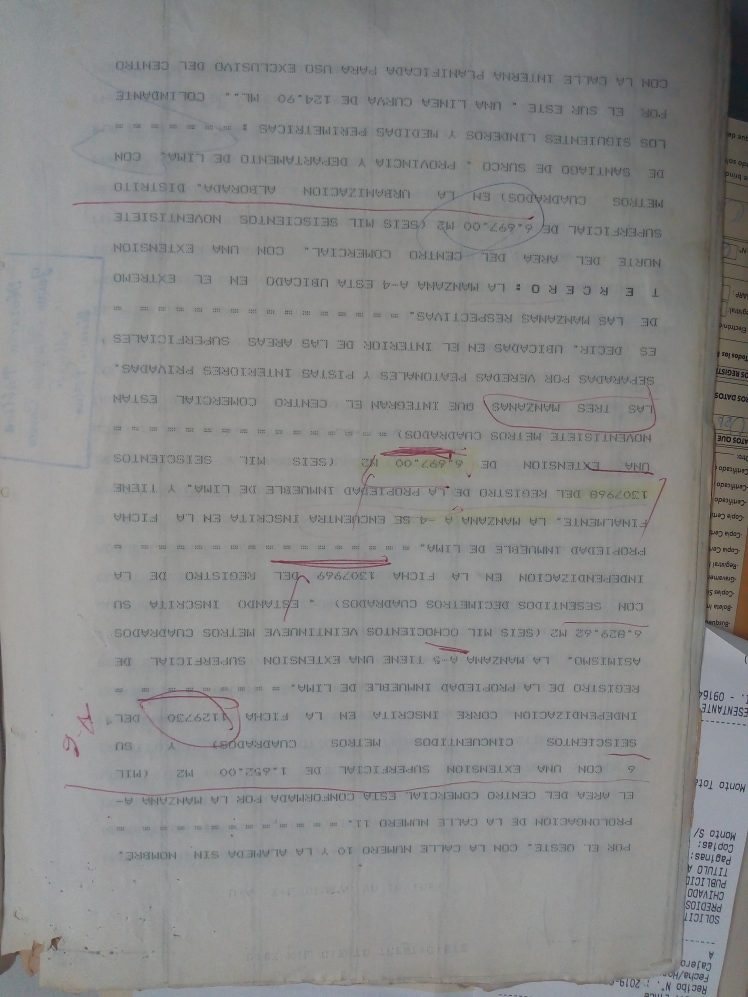 POR EL OESTE. CON LA CALLE NUMERO 10 Y LA ALAMEDA SIN NOMBRE.
PROLONGACION DE LA CALLE NUMERO 11. = = = = = = = = = = =
EL AREA DEL CENTRO COMERCIAL ESTA CONFORMADA POR LA MANZANA A-
6 CON UNA EXTENSION SUPERFICIAL DE 1.652.00 M2 (MIL
SEISCIENTOS CINCUENTIDOS METROS CUADRADOS) Y SU
INDEPENDIZACION CORRE INSCRITA EN LA FICHA 1129730 DEL
REGISTRO DE LA PROPIEDAD INMUEBLE DE LIMA. = = = = = = = =
ASIMISMO. LA MANZANA A-5 TIENE UNA EXTENSION SUPERFICIAL DE
6.829.62 M2 (SEIS MIL OCHOCIENTOS VEINTINUEVE METROS CUADRADOS
CON SESENTIDOS DECIMETROS CUADRADOS) . ESTANDO INSCRITA SU
INDEPENDIZACION EN LA FICHA 1307969 DEL REGISTRO DE LA
PROPIEDAD INMUEBLE DE LIMA. = = = = = = = = = = = = = = =
FINALMENTE. LA MANZANA A -4 SE ENCUENTRA INSCRITA EN LA FICHA
1307968 DEL REGISTRO DE LA PROPIEDAD INMUEBLE DE LIMA. Y TIENE
UNA EXTENSION DE 6.697.00 M2 (SEIS MIL SEISCIENTOS
NOVENTISIETE METROS CUADRADOS) = = = = = = = = = = = = = =
LAS TRES MANZANAS QUE INTEGRAN EL CENTRO COMERCIAL ESTAN
SEPARADAS POR VEREDAS PEATONALES Y PISTAS INTERIORES PRIVADAS.
ES DECIR. UBICADAS EN EL INTERIOR DE LAS AREAS SUPERFICIALES
DE LAS MANZANAS RESPECTIVAS. = = = = = = = = = = = = = = =
T E R C E R O : LA MANZANA A-4 ESTA UBICADO EN EL EXTREMO
NORTE DEL AREA DEL CENTRO COMERCIAL. CON UNA EXTENSION
SUPERFICIAL DE 6.697.00 M2 (SEIS MIL SEISCIENTOS NOVENTISIETE
METROS CUADRADOS) EN LA URBANIZACION ALBORADA. DISTRITO
DE SANTIAGO DE SURCO . PROVINCIA Y DEPARTAMENTO DE LIMA. CON
LOS SIGUIENTES LINDEROS Y MEDIDAS PERIMETRICAS : = = = = = = =
POR EL SUR ESTE . UNA LINEA CURVA DE 124.90 ML.. COLINDANTE
CON LA CALLE INTERNA PLANIFICADA PARA USO EXCLUSIVO DEL CENTRO
Cajero
A
SOLICIT
PREDIOS
CHIVADO
PUBLICID
TITULO A
Paginas:
Copias:
Monto S/
Monto Tot
ESENTANTE
. - 09164